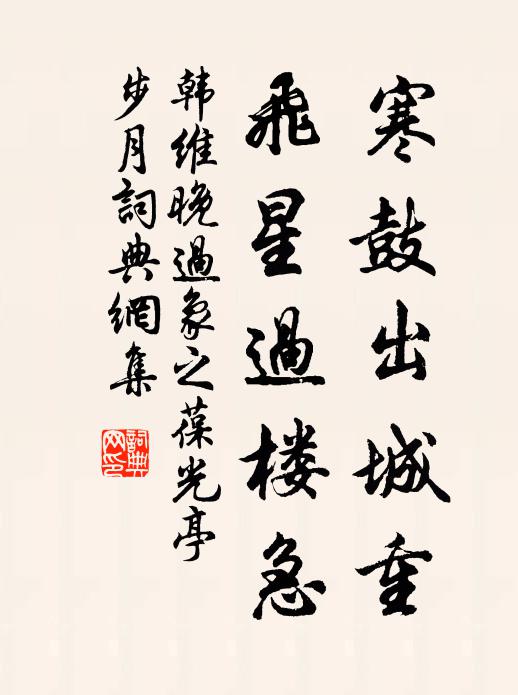 寒鼓出城重
飛星過楼急
韩维晚過象之葆光亭
步月詞典網集
詞典网印